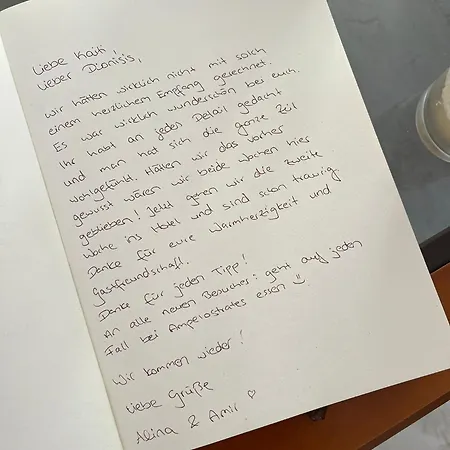 Liebe Kaiti,
Lieber Dionisis,
Wir hätten wirklich nicht mit solch
einem herzlichem Empfang gerechnet.
Es war wirklich wunderschön bei euch.
Ihr habt an jedes Detail gedacht
und man hat sich die ganze Zeit
wohlgefühlt. Hätten wir das vorher
gewusst wären wir beide Wochen hier
geblieben! Jetzt gehen wir die zweite
Woche ins Hotel und sind schon traurig.
Danke für eure Warmherzigkeit und
Gastfreundschaft.
Danke für jeden Tipp!
An alle neuen Besucher: geht auf jeden
Fall bei Ampelostrates essen :)
Wir kommen wieder!
Liebe Grüße
Alina & Amir ♡